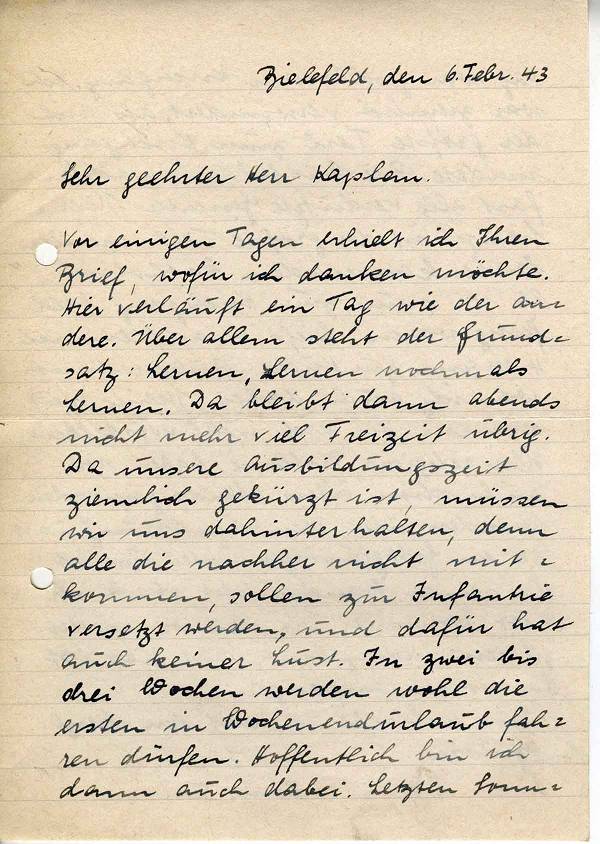 Bielefeld, den 6. Febr. 43
Sehr geehrter Herr Kaplan.
Vor einigen Tagen erhielt ich Ihren
Brief, wofür ich danken möchte.
Hier verläuft ein Tag wie der an=
dere. Über allem steht der Grund=
satz: Lernen, Lernen nochmals
Lernen. Da bleibt dann abends
nicht mehr viel Freizeit übrig.
Da unsere Ausbildungszeit
ziemlich gekürzt ist, müssen
wir uns dahinterhalten, denn
alle die nachher nicht mit=
kommen, sollen zur Infantrie
versetzt werden, und dafür hat
auch keiner Lust. In zwei bis
drei Wochen werden wohl die
ersten in Wochenendurlaub fah=
ren dürfen. Hoffentlich bin ich
dann auch dabei. Letzten Sonn=